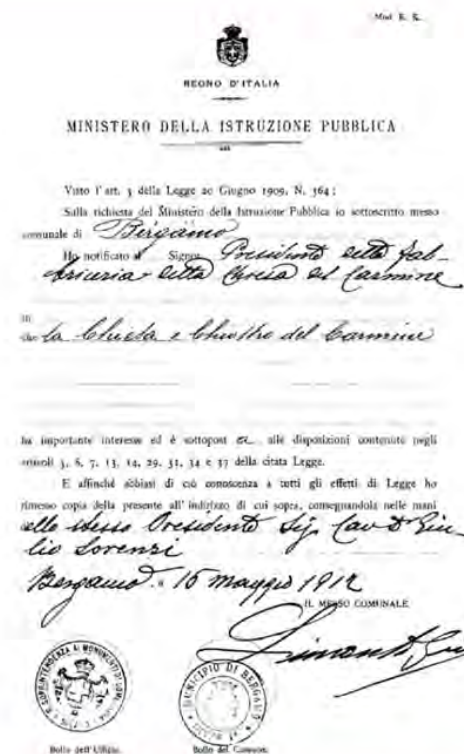 Mod. E. E.
REGNO D'ITALIA
MINISTERO DELLA ISTRUZIONE PUBBLICA
Visto l'art. 5 della Legge 20 Giugno 1909, N. 364;
Sulla richiesta del Ministero della Istruzione Pubblica io sottoscritto messo
comunale di Bergamo
Ho notificato al Signor Presidente della fab-
briceria della Chiesa del Carmine
in
che la Chiesa e Chiostro del Carmine
ha importante interesse ed è sottopost a alle disposizioni contenute negli
articoli 5, 6, 7, 13, 14, 29, 31, 34 e 37 della citata Legge.
E affinchè abbiasi di ciò conoscenza a tutti gli effetti di Legge ho
rimesso copia della presente all'indirizzo di cui sopra, consegnandola nelle mani
dello stesso Presidente Sig. Cav. Dr Giu-
lio Lorenzi
Bergamo, 15 maggio 1912
IL MESSO COMUNALE
MUNICIPIO DI BERGAMO
Bollo dell'Ufficio.
Bollo del Comune.